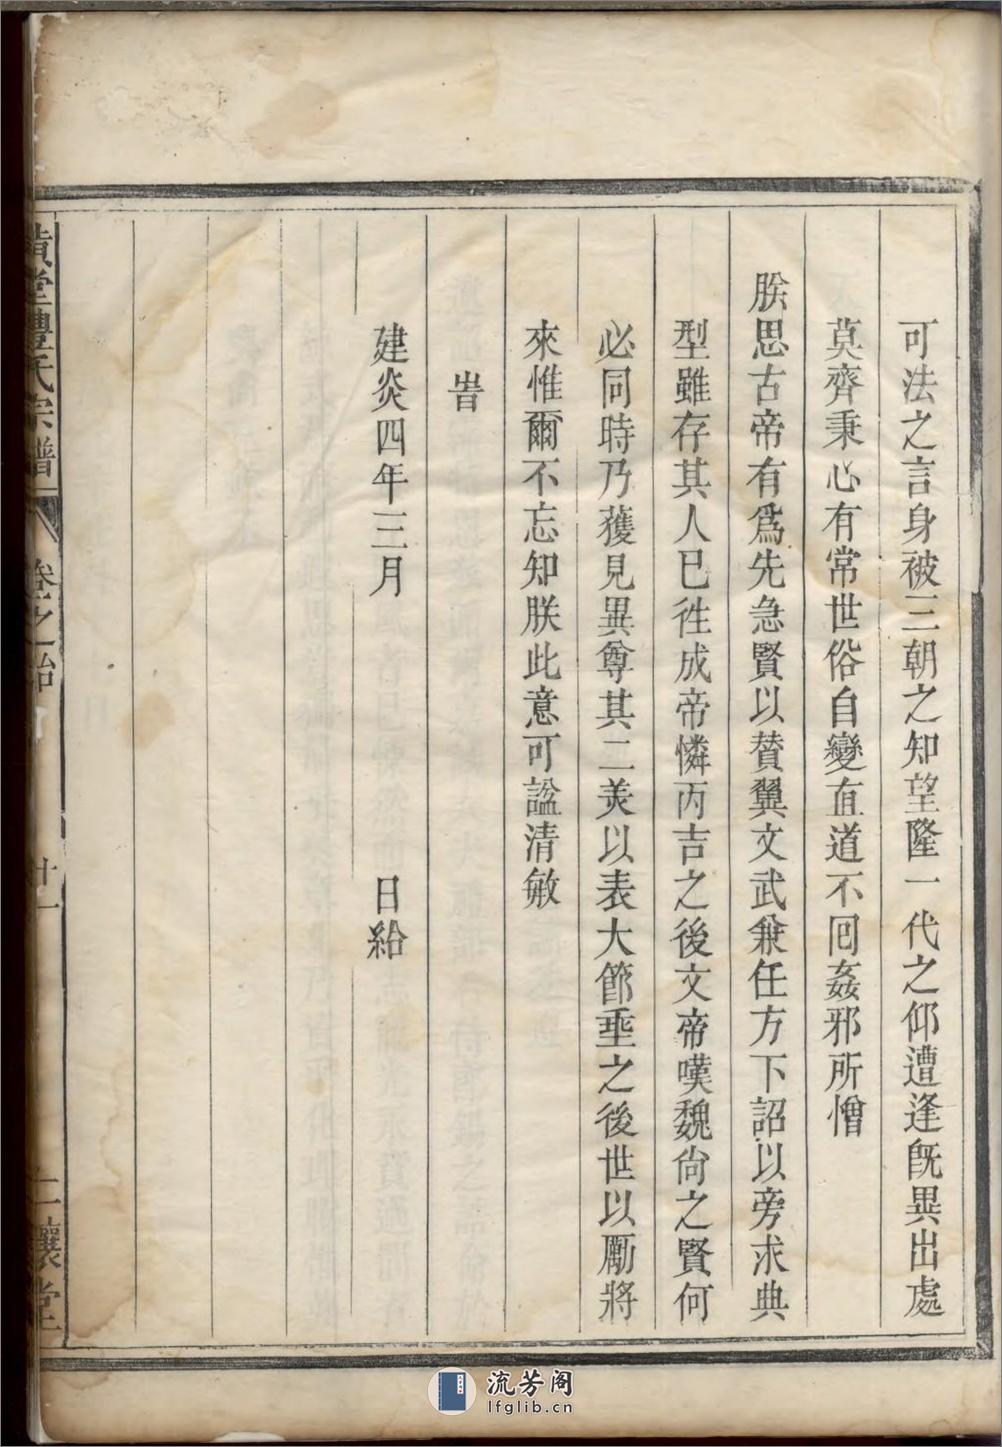 可法之言身被三朝之知望隆一代之仰遭逢旣異出處
莫齊秉心有常世俗自變直道不回姦邪所憎
朕思古帝有爲先急賢以賛翼文武兼任方下詔以旁求典
型雖存其人已徃成帝憐丙吉之後文帝嘆魏尙之賢何
必同時乃獲見異尊其二美以表大節垂之後世以勵將
來惟爾不忘知朕此意可諡清敏
旹
建炎四年三月　日給
堂豐氏宗譜
卷之
廿一
讓堂
流芳阁
lfglib.cn